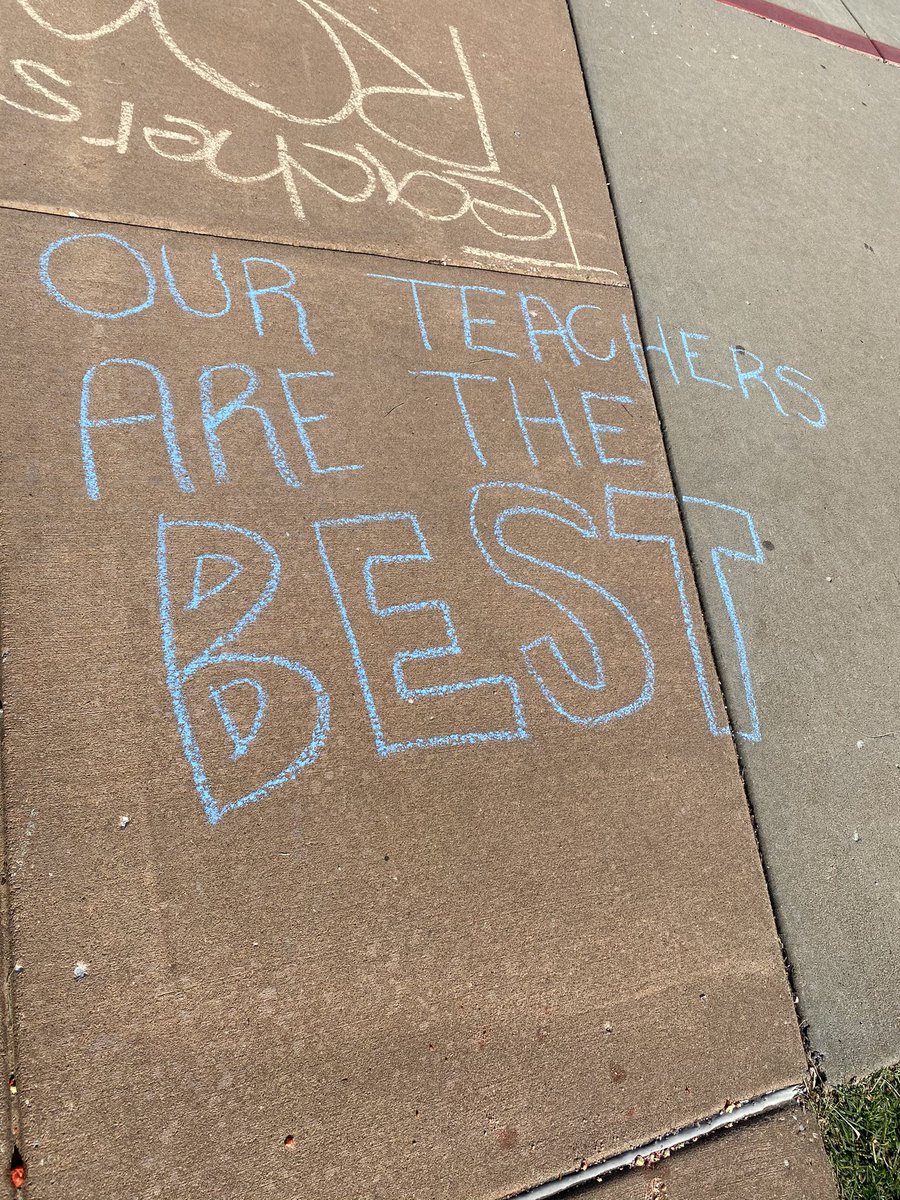 Teachers
OUR TEACHERS
ARE THE
BEST